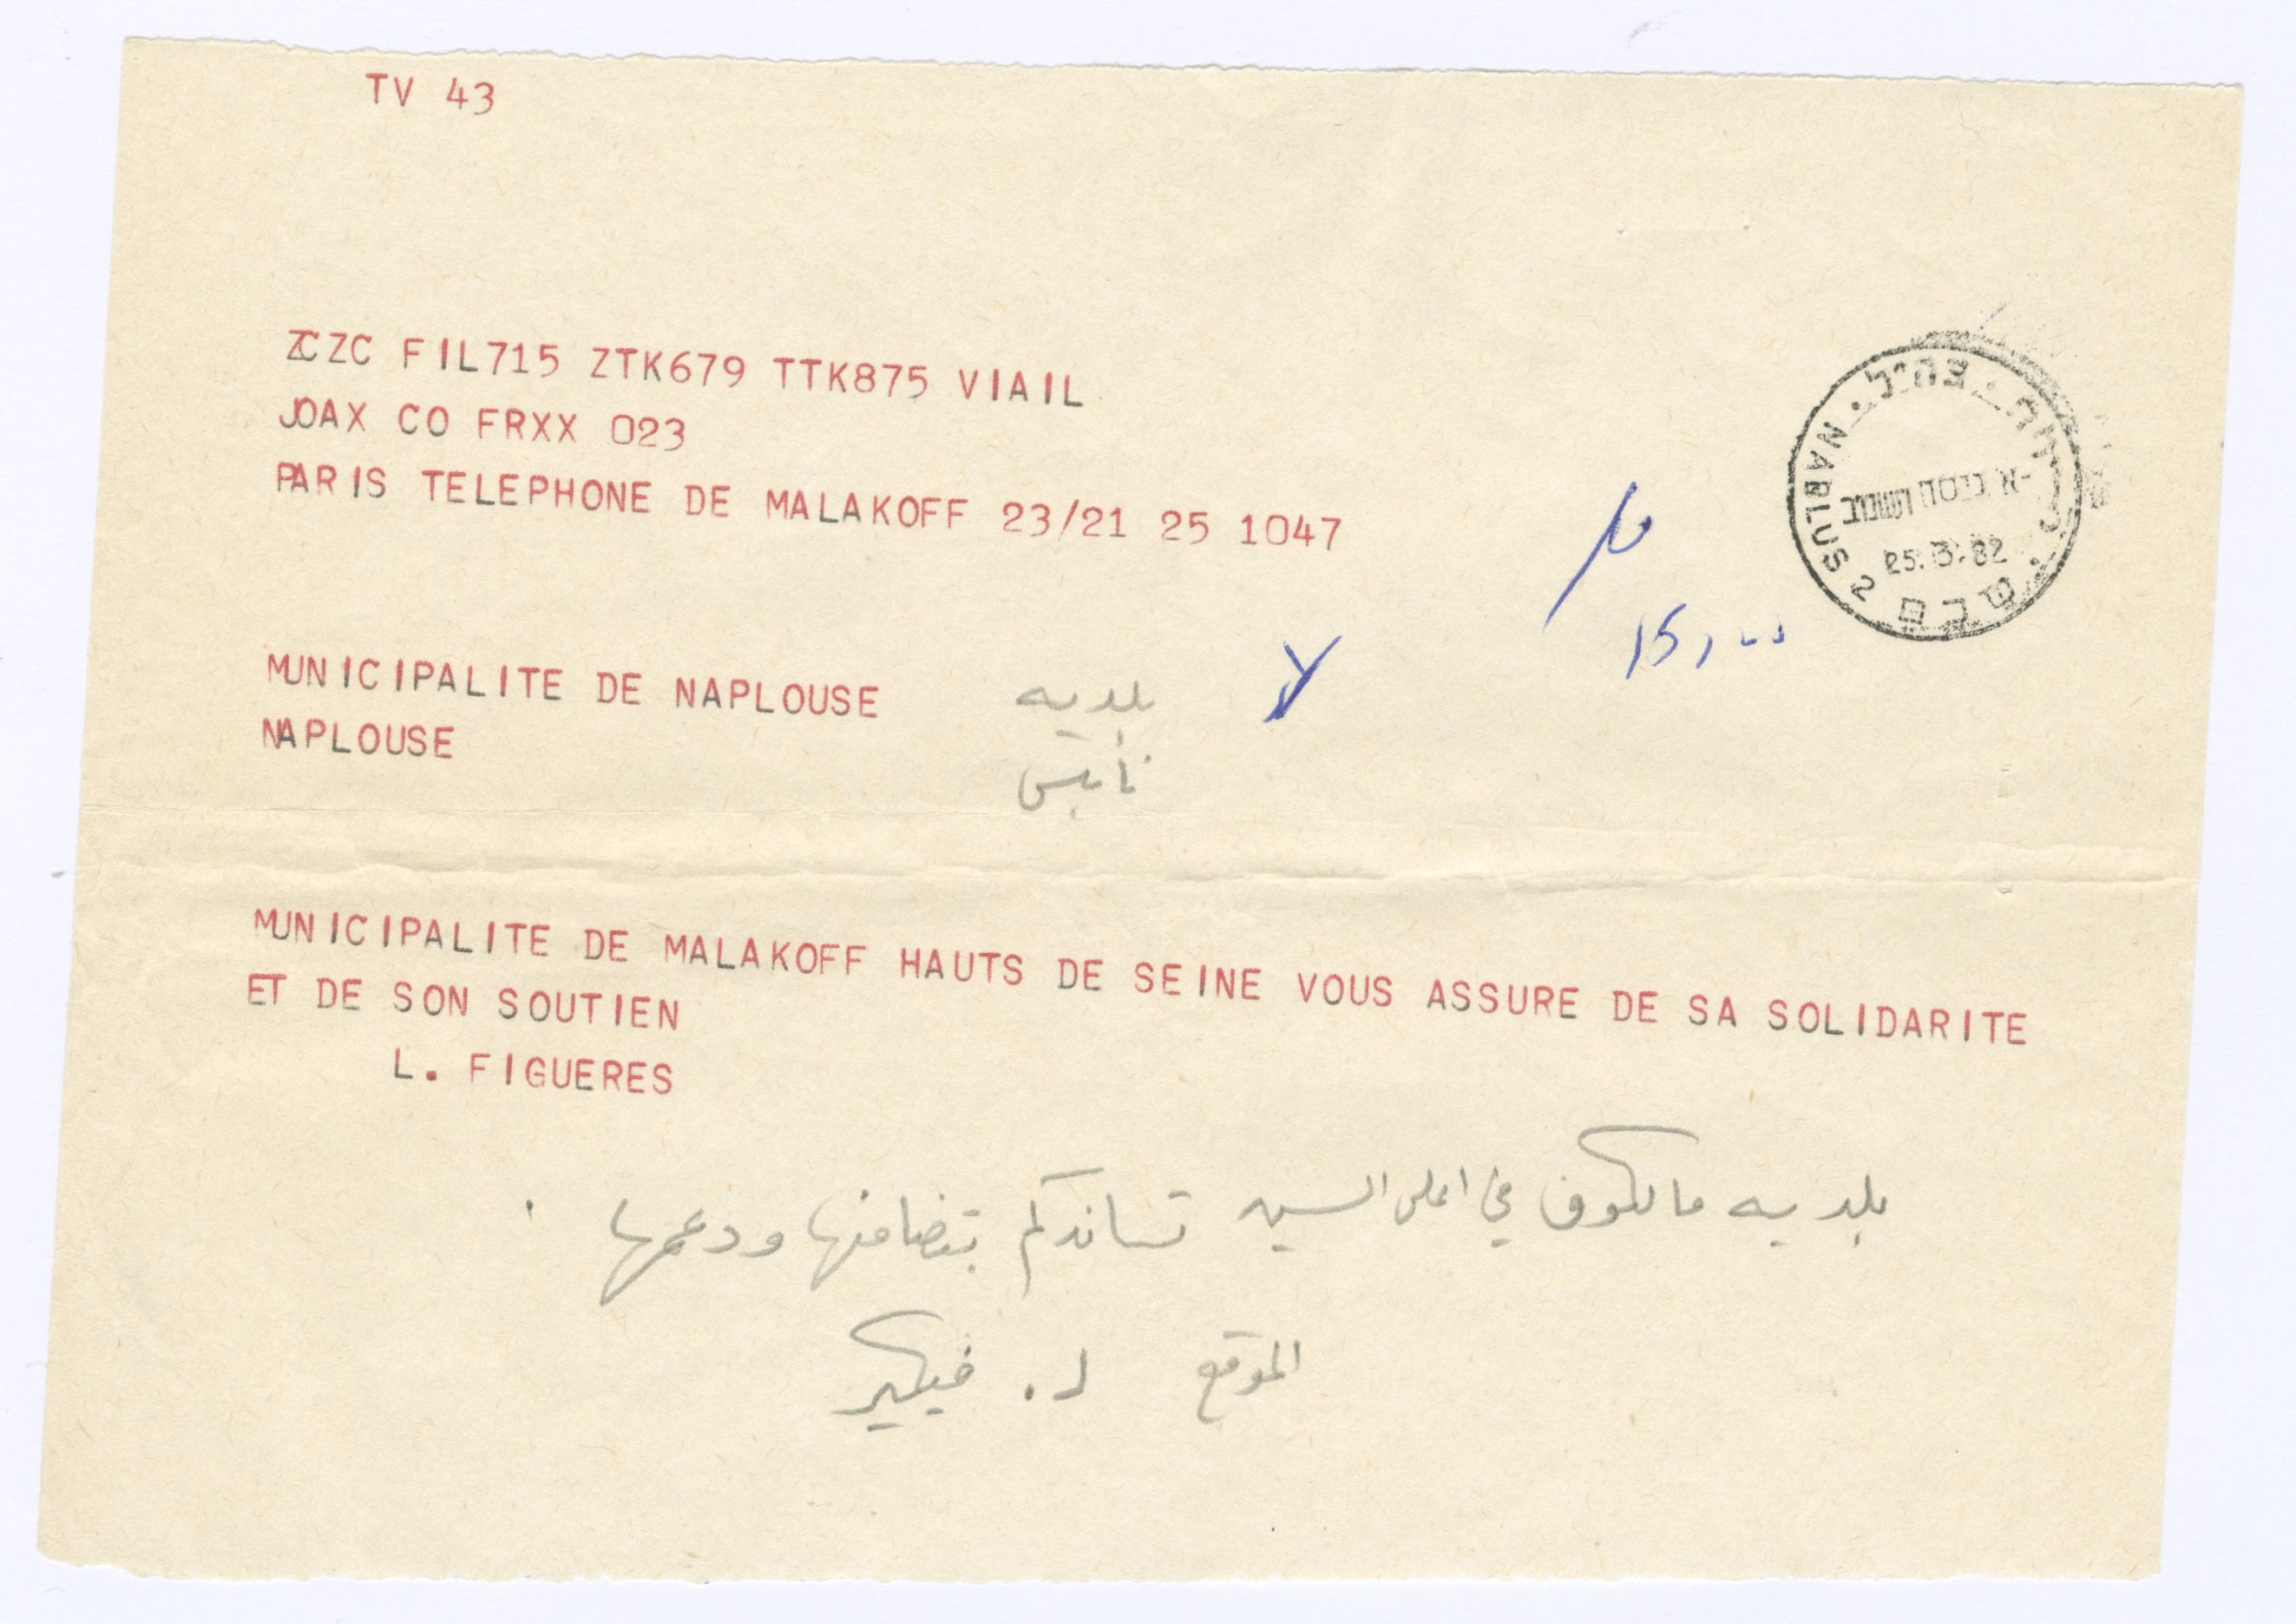 TV 43
ZCZC FIL715 ZTK679 TTK875 VIAIL
JOAX CO FRXX 023
PARIS TELEPHONE DE MALAKOFF 23/21 25 1047
צה״ל
NABLUS 2
שכם
25.3.82
15,00
MUNICIPALITE DE NAPLOUSE
بلديه
NAPLOUSE
نابلس
MUNICIPALITE DE MALAKOFF HAUTS DE SEINE VOUS ASSURE DE SA SOLIDARITE
ET DE SON SOUTIEN
L. FIGUERES
بلديه مالكوف في اعلى السين تساندكم بتضامنها ودعمها .
الموقع ل. فيكير